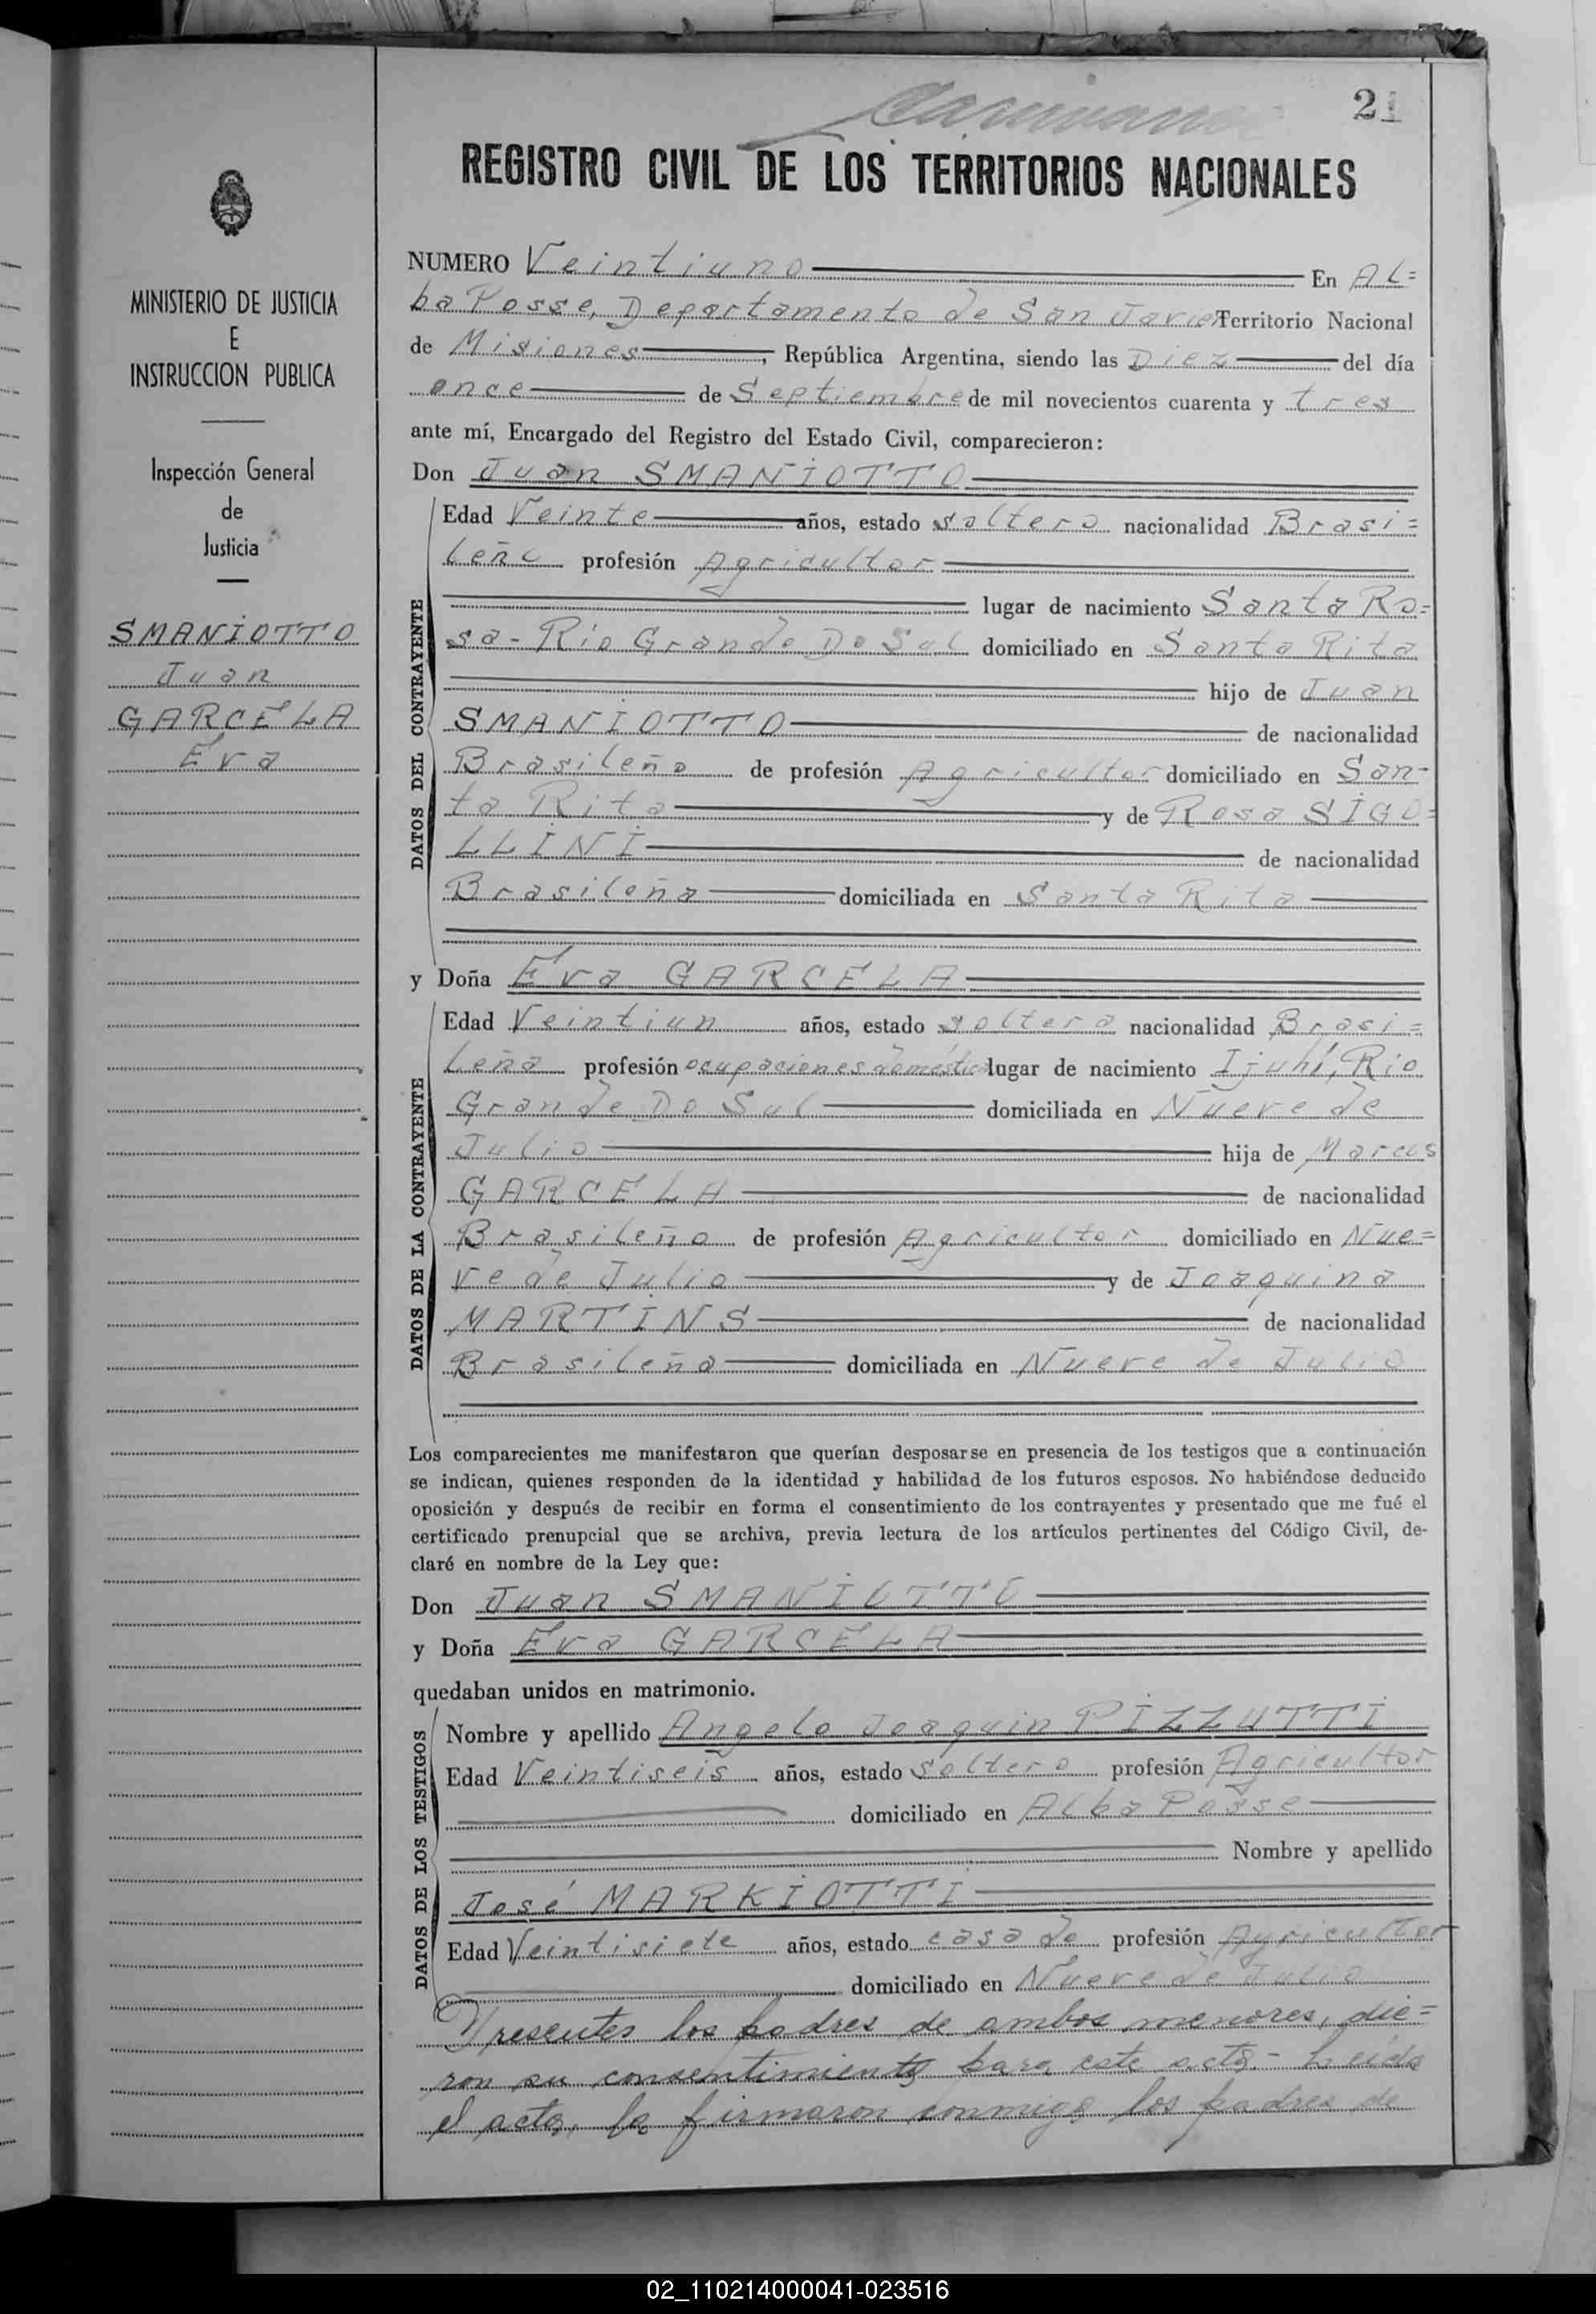 21
REGISTRO CIVIL DE LOS TERRITORIOS NACIONALES
MINISTERIO DE JUSTICIA
E
INSTRUCCION PUBLICA
Inspección General
de
Justicia
SMANIOTTO
Juan
GARCELA
Eva
NUMERO Veintiuno En Al=
ba Posse, Departamento de San Javier Territorio Nacional
de Misiones, República Argentina, siendo las Diez del día
once de Septiembre de mil novecientos cuarenta y tres
ante mí, Encargado del Registro del Estado Civil, comparecieron:
Don Juan SMANIOTTO
DATOS DEL CONTRAYENTE
Edad Veinte años, estado soltero nacionalidad Brasi=
leño profesión Agricultor
lugar de nacimiento Santa Ro=
sa - Rio Grande Do Sul domiciliado en Santa Rita
hijo de Juan
SMANIOTTO de nacionalidad
Brasileño de profesión Agricultor domiciliado en San-
ta Rita y de Rosa SIGO=
LLINI de nacionalidad
Brasileña domiciliada en Santa Rita
y Doña Eva GARCELA
DATOS DE LA CONTRAYENTE
Edad Veintiun años, estado soltera nacionalidad Brasi=
leña profesión ocupaciones domésticas lugar de nacimiento Ijuhí, Rio
Grande Do Sul domiciliada en Nueve de
Julio hija de Marcos
GARCELA de nacionalidad
Brasileño de profesión Agricultor domiciliado en Nue=
ve de Julio y de Joaquina
MARTINS de nacionalidad
Brasileña domiciliada en Nueve de Julio
Los comparecientes me manifestaron que querían desposarse en presencia de los testigos que a continuación
se indican, quienes responden de la identidad y habilidad de los futuros esposos. No habiéndose deducido
oposición y después de recibir en forma el consentimiento de los contrayentes y presentado que me fué el
certificado prenupcial que se archiva, previa lectura de los artículos pertinentes del Código Civil, de-
claré en nombre de la Ley que:
Don Juan SMANIOTTO
y Doña Eva GARCELA
quedaban unidos en matrimonio.
DATOS DE LOS TESTIGOS
Nombre y apellido Angelo Joaquin PIZZUTTI
Edad Veintiseis años, estado soltero profesión Agricultor
domiciliado en Alba Posse
Nombre y apellido
José MARKIOTTI
Edad Veintisiete años, estado casado profesión Agricultor
domiciliado en Nueve de Julio
Presentes los padres de ambos menores, die=
ron su consentimiento para este acto.- Leída
el acta, la firmaron conmigo los padres de
02_110214000041-023516